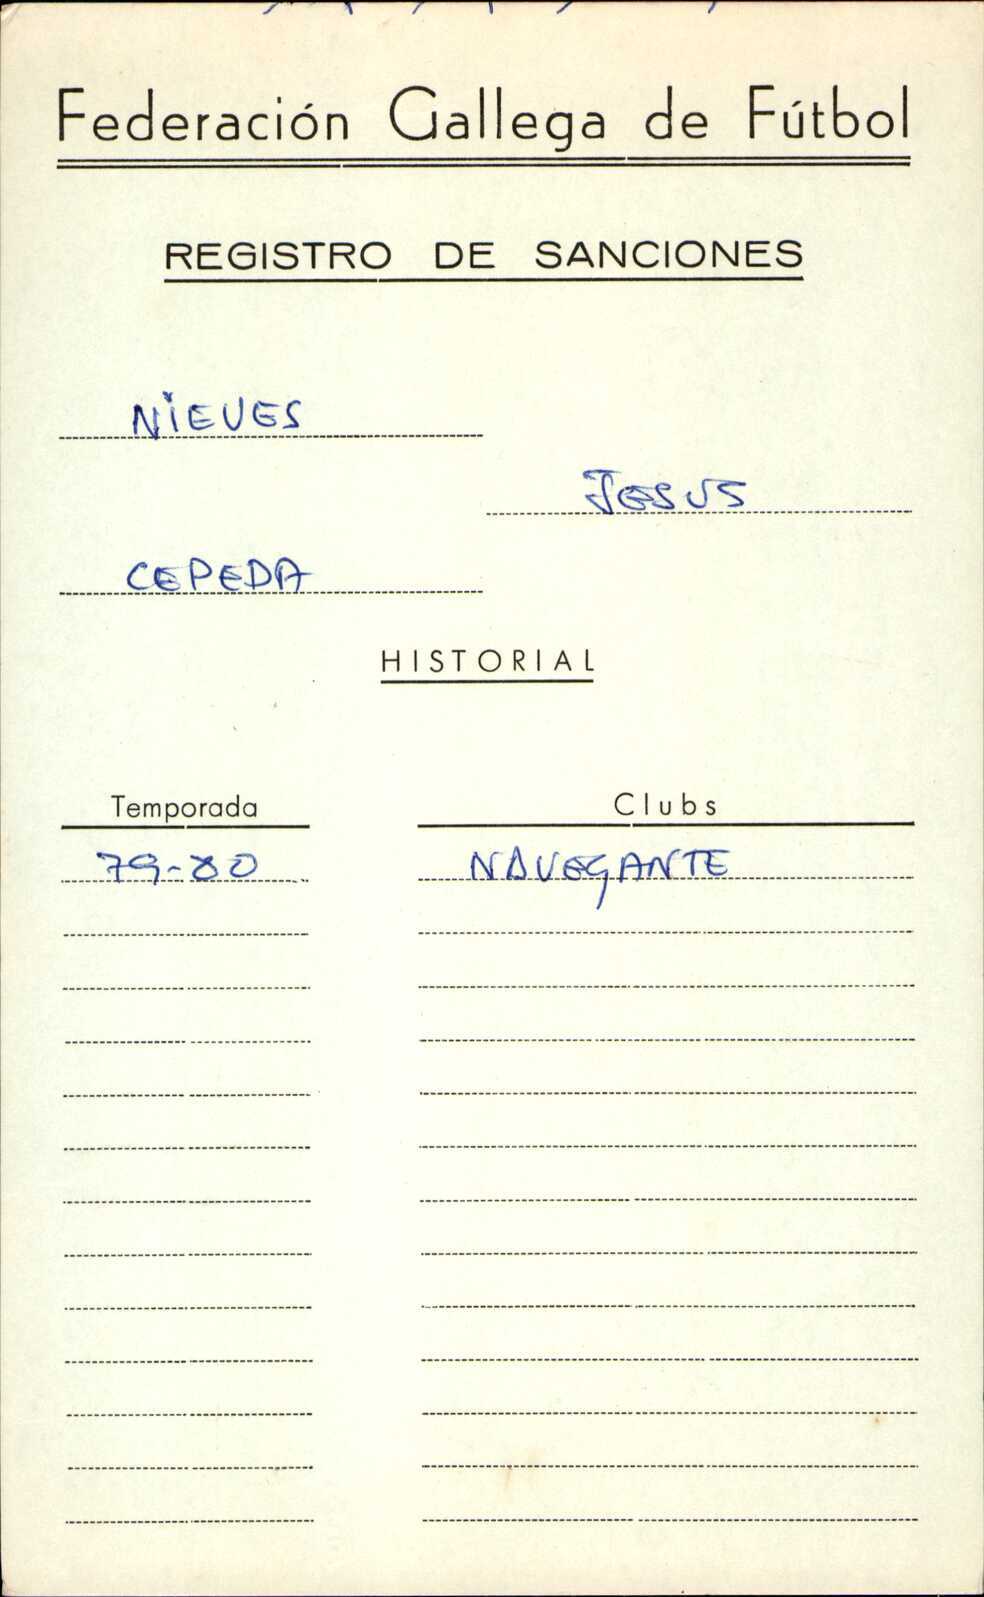 Federación Gallega de Fútbol
REGISTRO DE SANCIONES
NIEVES
JESUS
CEPEDA
HISTORIAL
Temporada Clubs
79-80 NAVEGANTE